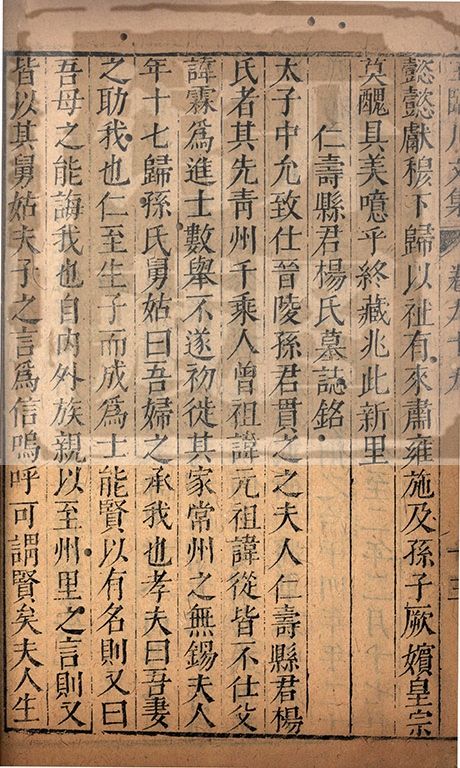 王臨川文集 卷九十九 十三
懿懿獻穆下歸以祉有來肅雍施及孫子厥嬪皇宗
莫醜具美噫乎終藏兆此新里
仁壽縣君楊氏墓誌銘
太子中允致仕晉陵孫君貫之之夫人仁壽縣君楊
氏者其先青州千乘人曾祖諱元祖諱從皆不仕父
諱霖爲進士數舉不遂初徙其家常州之無錫夫人
年十七歸孫氏舅姑曰吾婦之承我也孝夫曰吾妻
之助我也仁至生子而成爲士能賢以有名則又曰
吾母之能誨我也自內外族親以至州里之言則又
皆以其舅姑夫子之言爲信嗚呼可謂賢矣夫人生